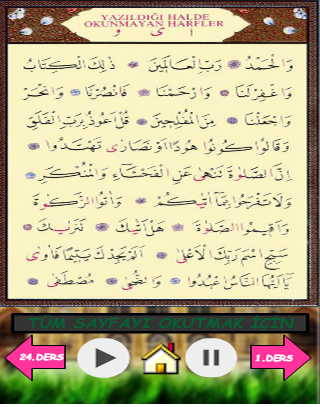 YAZILDIĞI HALDE
OKUNMAYAN HARFLER
ا ى و
وَالْحَمْدُ رَبِّ الْعَالَمِينَ ذَلِكَ الْكِتَابُ
وَاغْفِرْ لَنَا وَارْحَمْنَا فَانْصُرْنَا وَانْحَرْ
وَاجْعَلْنَا مِنَ الْمُفْلِحِينَ قُلْ اَعُوذُ بِرَبِّ الْفَلَقِ
وَقَالُوا كُونُوا هُودًا اَوْ نَصَارٰى تَهْتَدُوا
اِنَّ الصَّلٰوةَ تَنْهٰى عَنِ الْفَحْشَاءِ وَالْمُنْكَرِ
وَلَا تَفْرَحُوا بِمَا اٰتٰيكُمْ وَاٰتُوا الزَّكٰوةَ
وَاَقِيمُوا الصَّلٰوةَ هَلْ اَتٰيكَ نَرٰيكَ
سَبِّحِ اسْمَ رَبِّكَ الْاَعْلٰى اَلَمْ يَجِدْكَ يَتِيمًا فَاٰوٰى
يَا اَيُّهَا النَّاسُ اعْبُدُوا وَالضُّحٰى مُصْطَفٰى
TÜM SAYFAYI OKUTMAK İÇİN
24.DERS 1.DERS